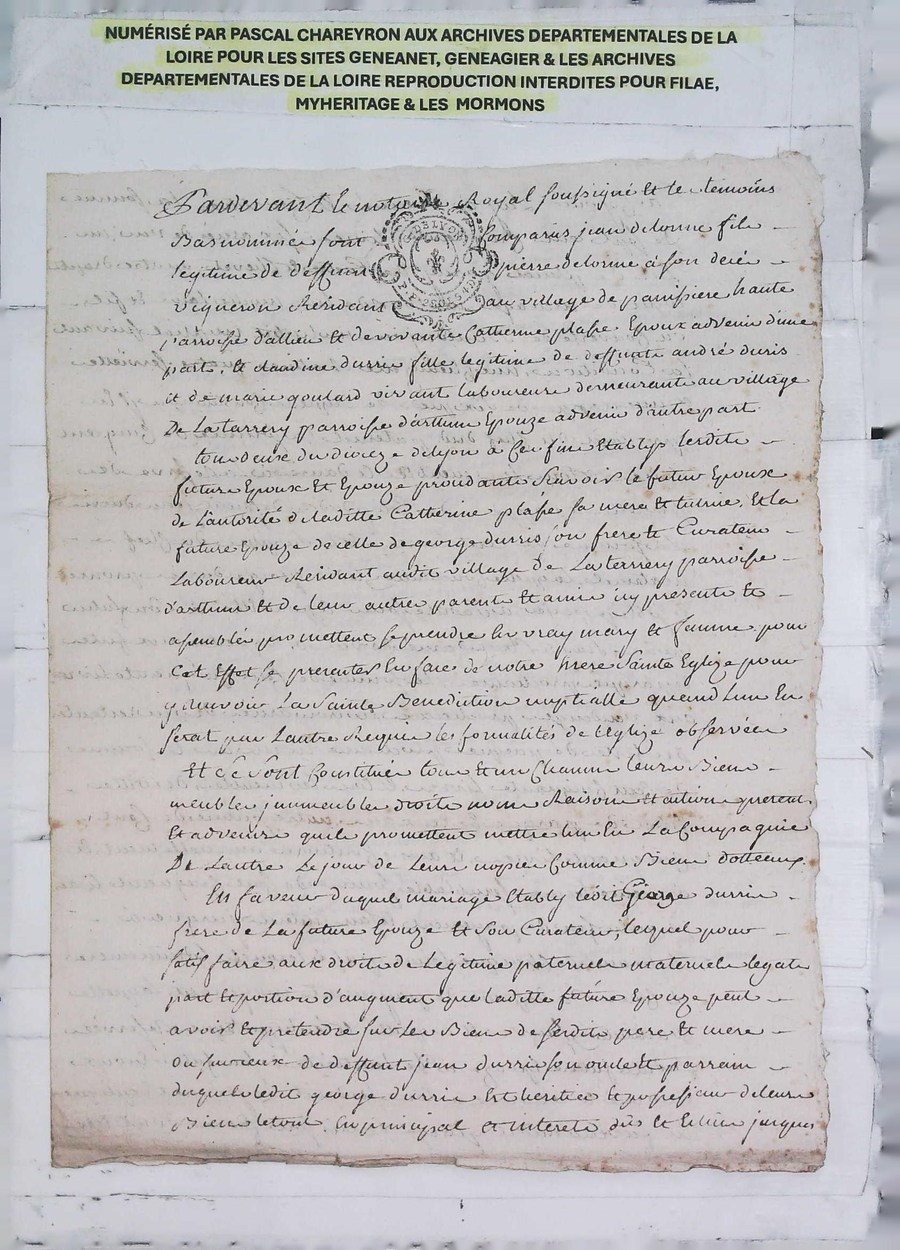 NUMÉRISÉ PAR PASCAL CHAREYRON AUX ARCHIVES DEPARTEMENTALES DE LA
LOIRE POUR LES SITES GENEANET, GENEAGIER & LES ARCHIVES
DEPARTEMENTALES DE LA LOIRE REPRODUCTION INTERDITES POUR FILAE,
MYHERITAGE & LES MORMONS
Pardevant le notaire Royal soussigné Et le temoins
Bas nommés sont comparus jean delorme fils
legitime de deffunt pierre delorme a son decé
DE LYON
vigneron Residant au village de panissiere haute
parroisse d'allieu Et de vivante Catherine plasse Epoux advenir d'une
part, Et claudine durris fille legitime de deffunts andré duris
et de marie goulard vivant laboureurs demeurant au village
De Laterrery parroisse d'arthun Epouze advenir d'autre part
tous deux du dioceze de lyon a ces fins Etablys lesdits
futurs Epoux Et Epouze procedants sçavoir le futur Epoux
de L'autorité de laditte Catherine plasse sa mere et tutrice, Et la
future Epouze de celle de george durris son frere Et Curateur
Laboureur Residant audit village de Laterrery parroisse
d'arthun Et de leurs autres parents Et amis icy presents Et
assemblés promettent se prendre En vray mary Et femme pour
Cet Effet se presenter En face de notre Mere Sainte Eglize pour
y recevoir La Sainte Benediction nuptialle quand L'un En
serat par L'autre Requis les formalités de l'Eglize observées
Et Se Sont Constitués tous Et un Chacun leurs Biens
meubles jmmeubles droits noms Raisons Et actions present
Et advenirs quils promettent mettre L'un En La Compagnie
De Lautre Le jour de Leurs nopces Comme Biens dotteaux.
En faveur duquel mariage Etably ledit George durris
frere de La future Epouze Et Son Curateur, lequel pour
satisfaire aux droits de Legitime paternels maternels legats
part Et portion d'augment que laditte future Epouze peut
avoir Et pretendre sur Les Biens desdits pere Et mere
ou sur ceux de deffunt jean durris son oncle Et parrain
duquel ledit george durris Est heritier Et possesseur de leurs
Biens le tout En principal et interets dus Et Echus jusques